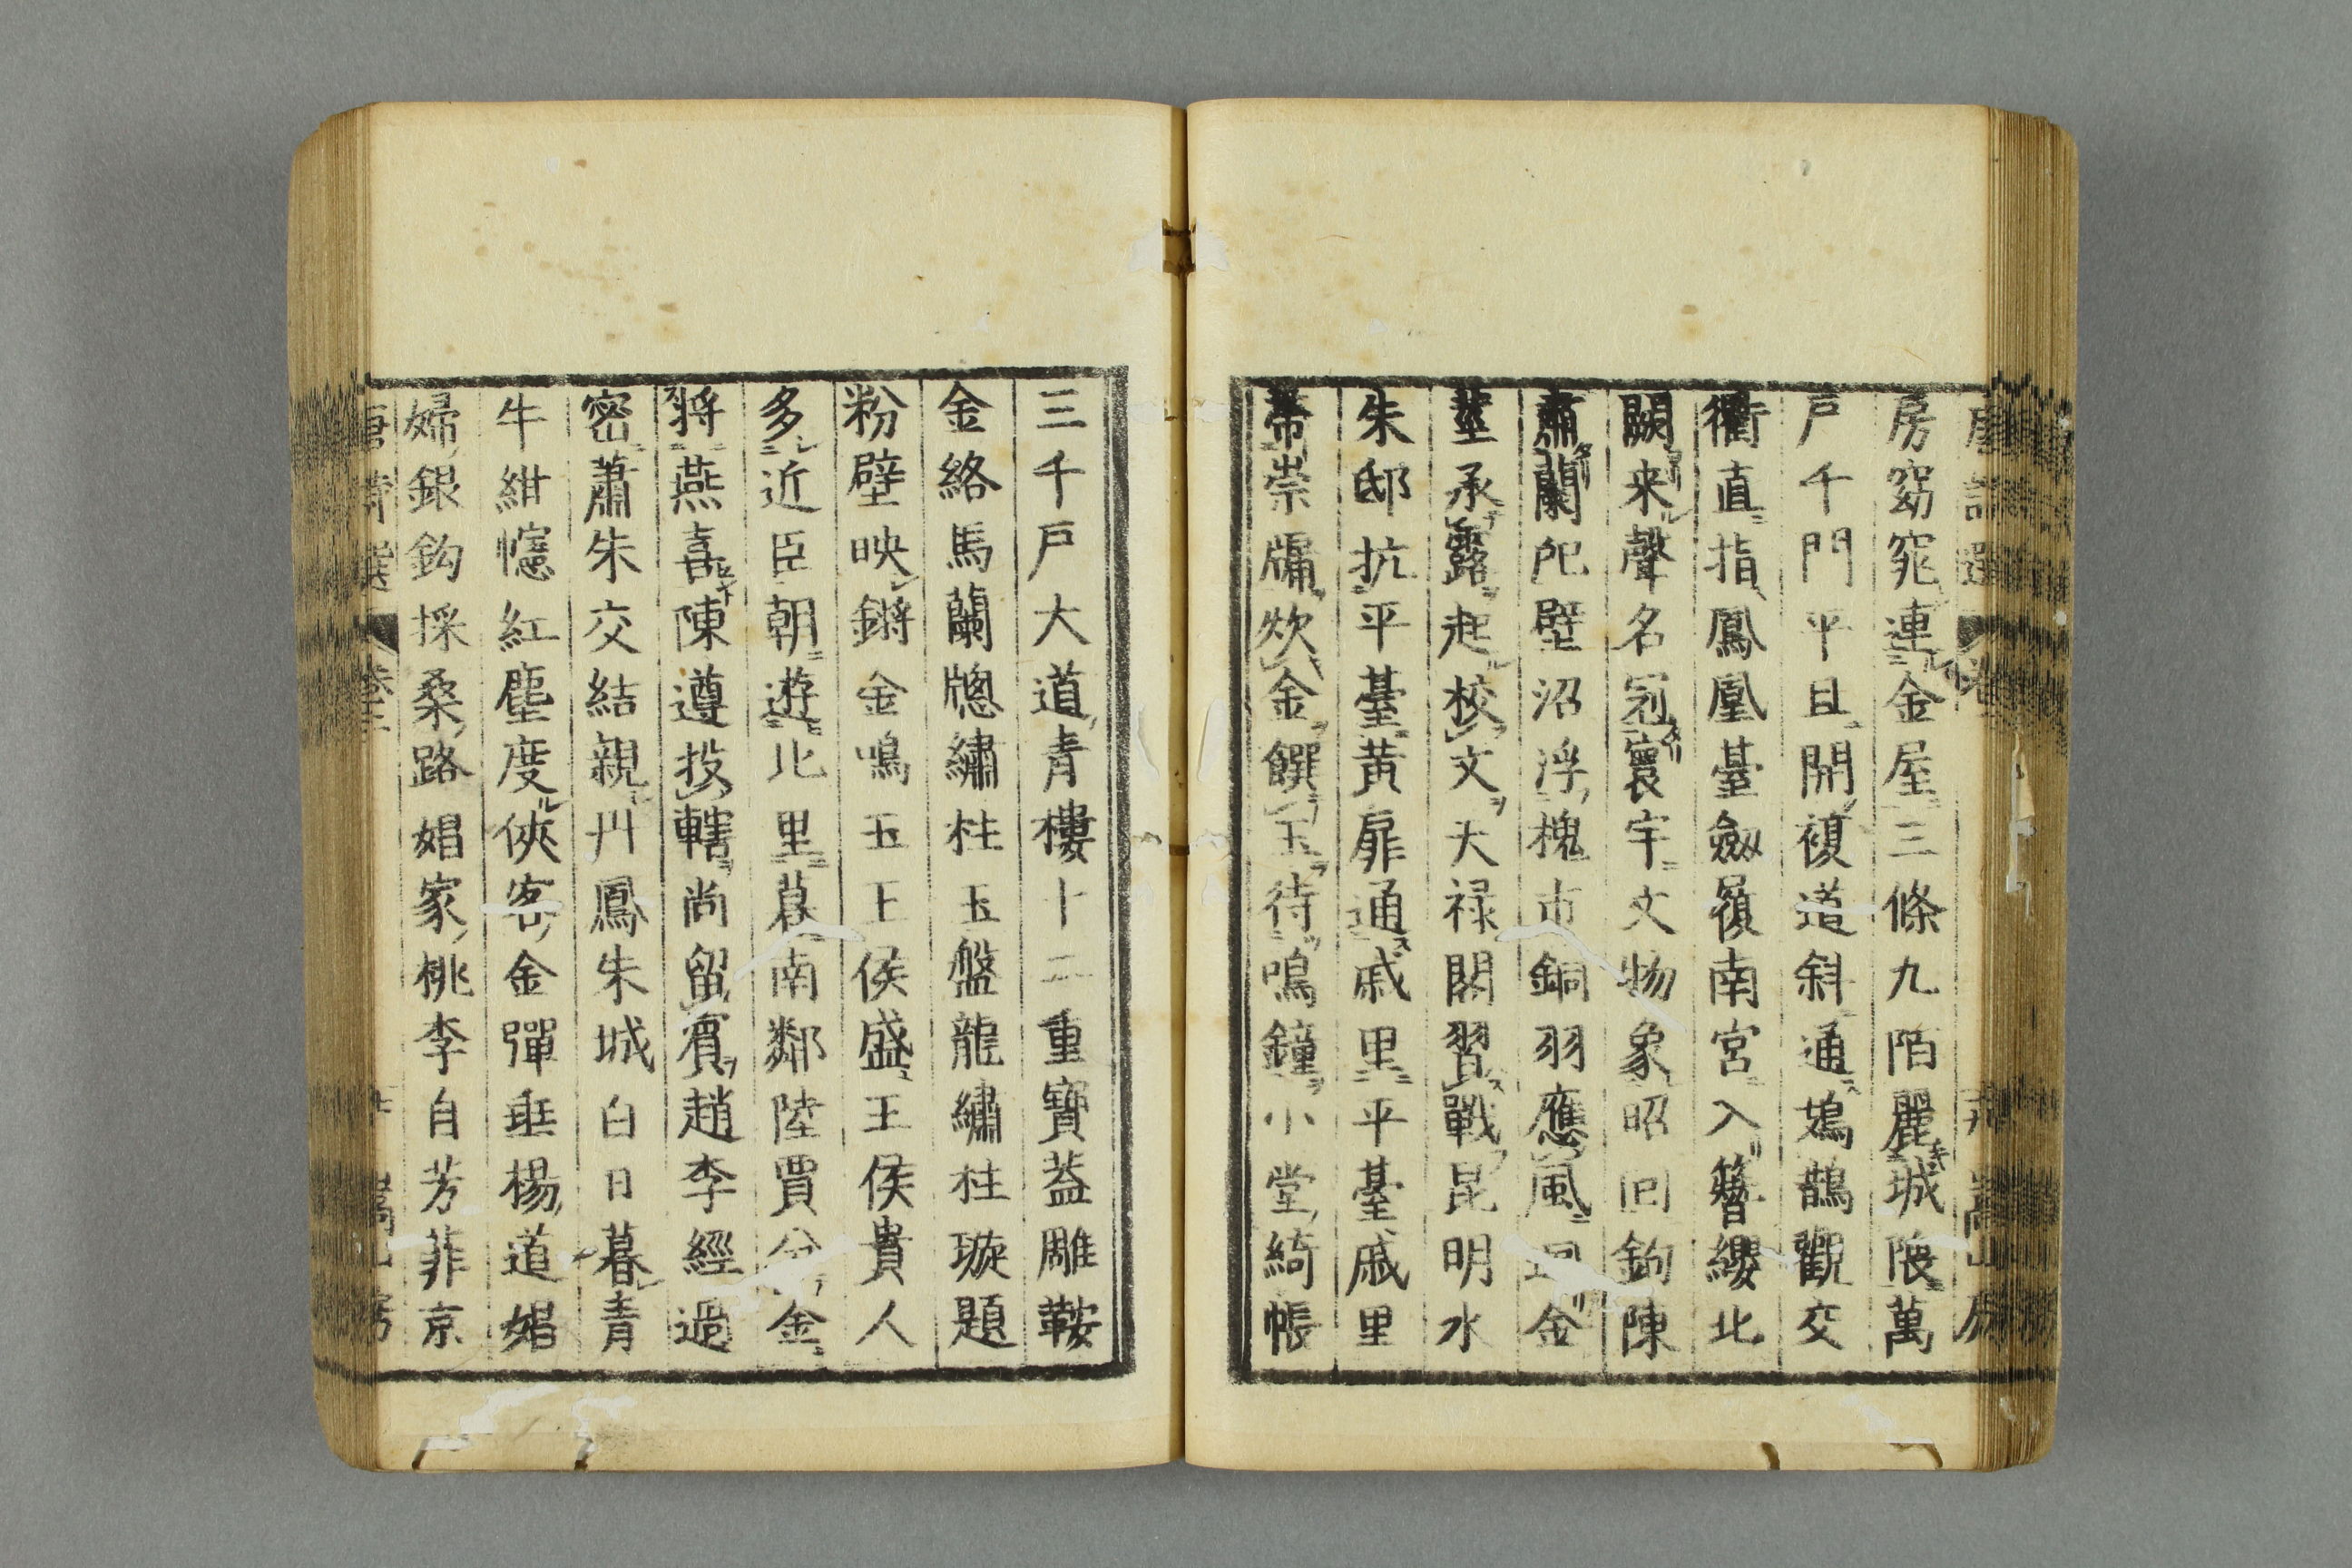 房窈窕連金屋三條九陌麗城隈萬
戸千門平旦開複道斜通鳷鵲觀交
衢直指鳳凰臺劔履南宮入簪纓北
闕来聲名冠寰宇文物象昭回鉤陳
肅蘭戺壁沼浮槐市銅羽應風回金
莖承露起校文天禄閣習戰昆明水
朱邸抗平臺黄扉通戚里平臺戚里
帶崇墉炊金饌玉待鳴鐘小堂綺帳
三千戸大道青樓十二重寶蓋雕鞍
金絡馬蘭牕繡柱玉盤龍繡柱璇題
粉壁映鏘金鳴玉王侯盛王侯貴人
多近臣朝遊北里暮南鄰陸賈分金
將燕喜陳遵投轄尚留賓趙李經過
密蕭朱交結親丹鳳朱城白日暮青
牛紺幰紅塵度俠客金彈垂楊道娼
婦銀鈎採桑路娼家桃李自芳菲京
唐詩選 卷二